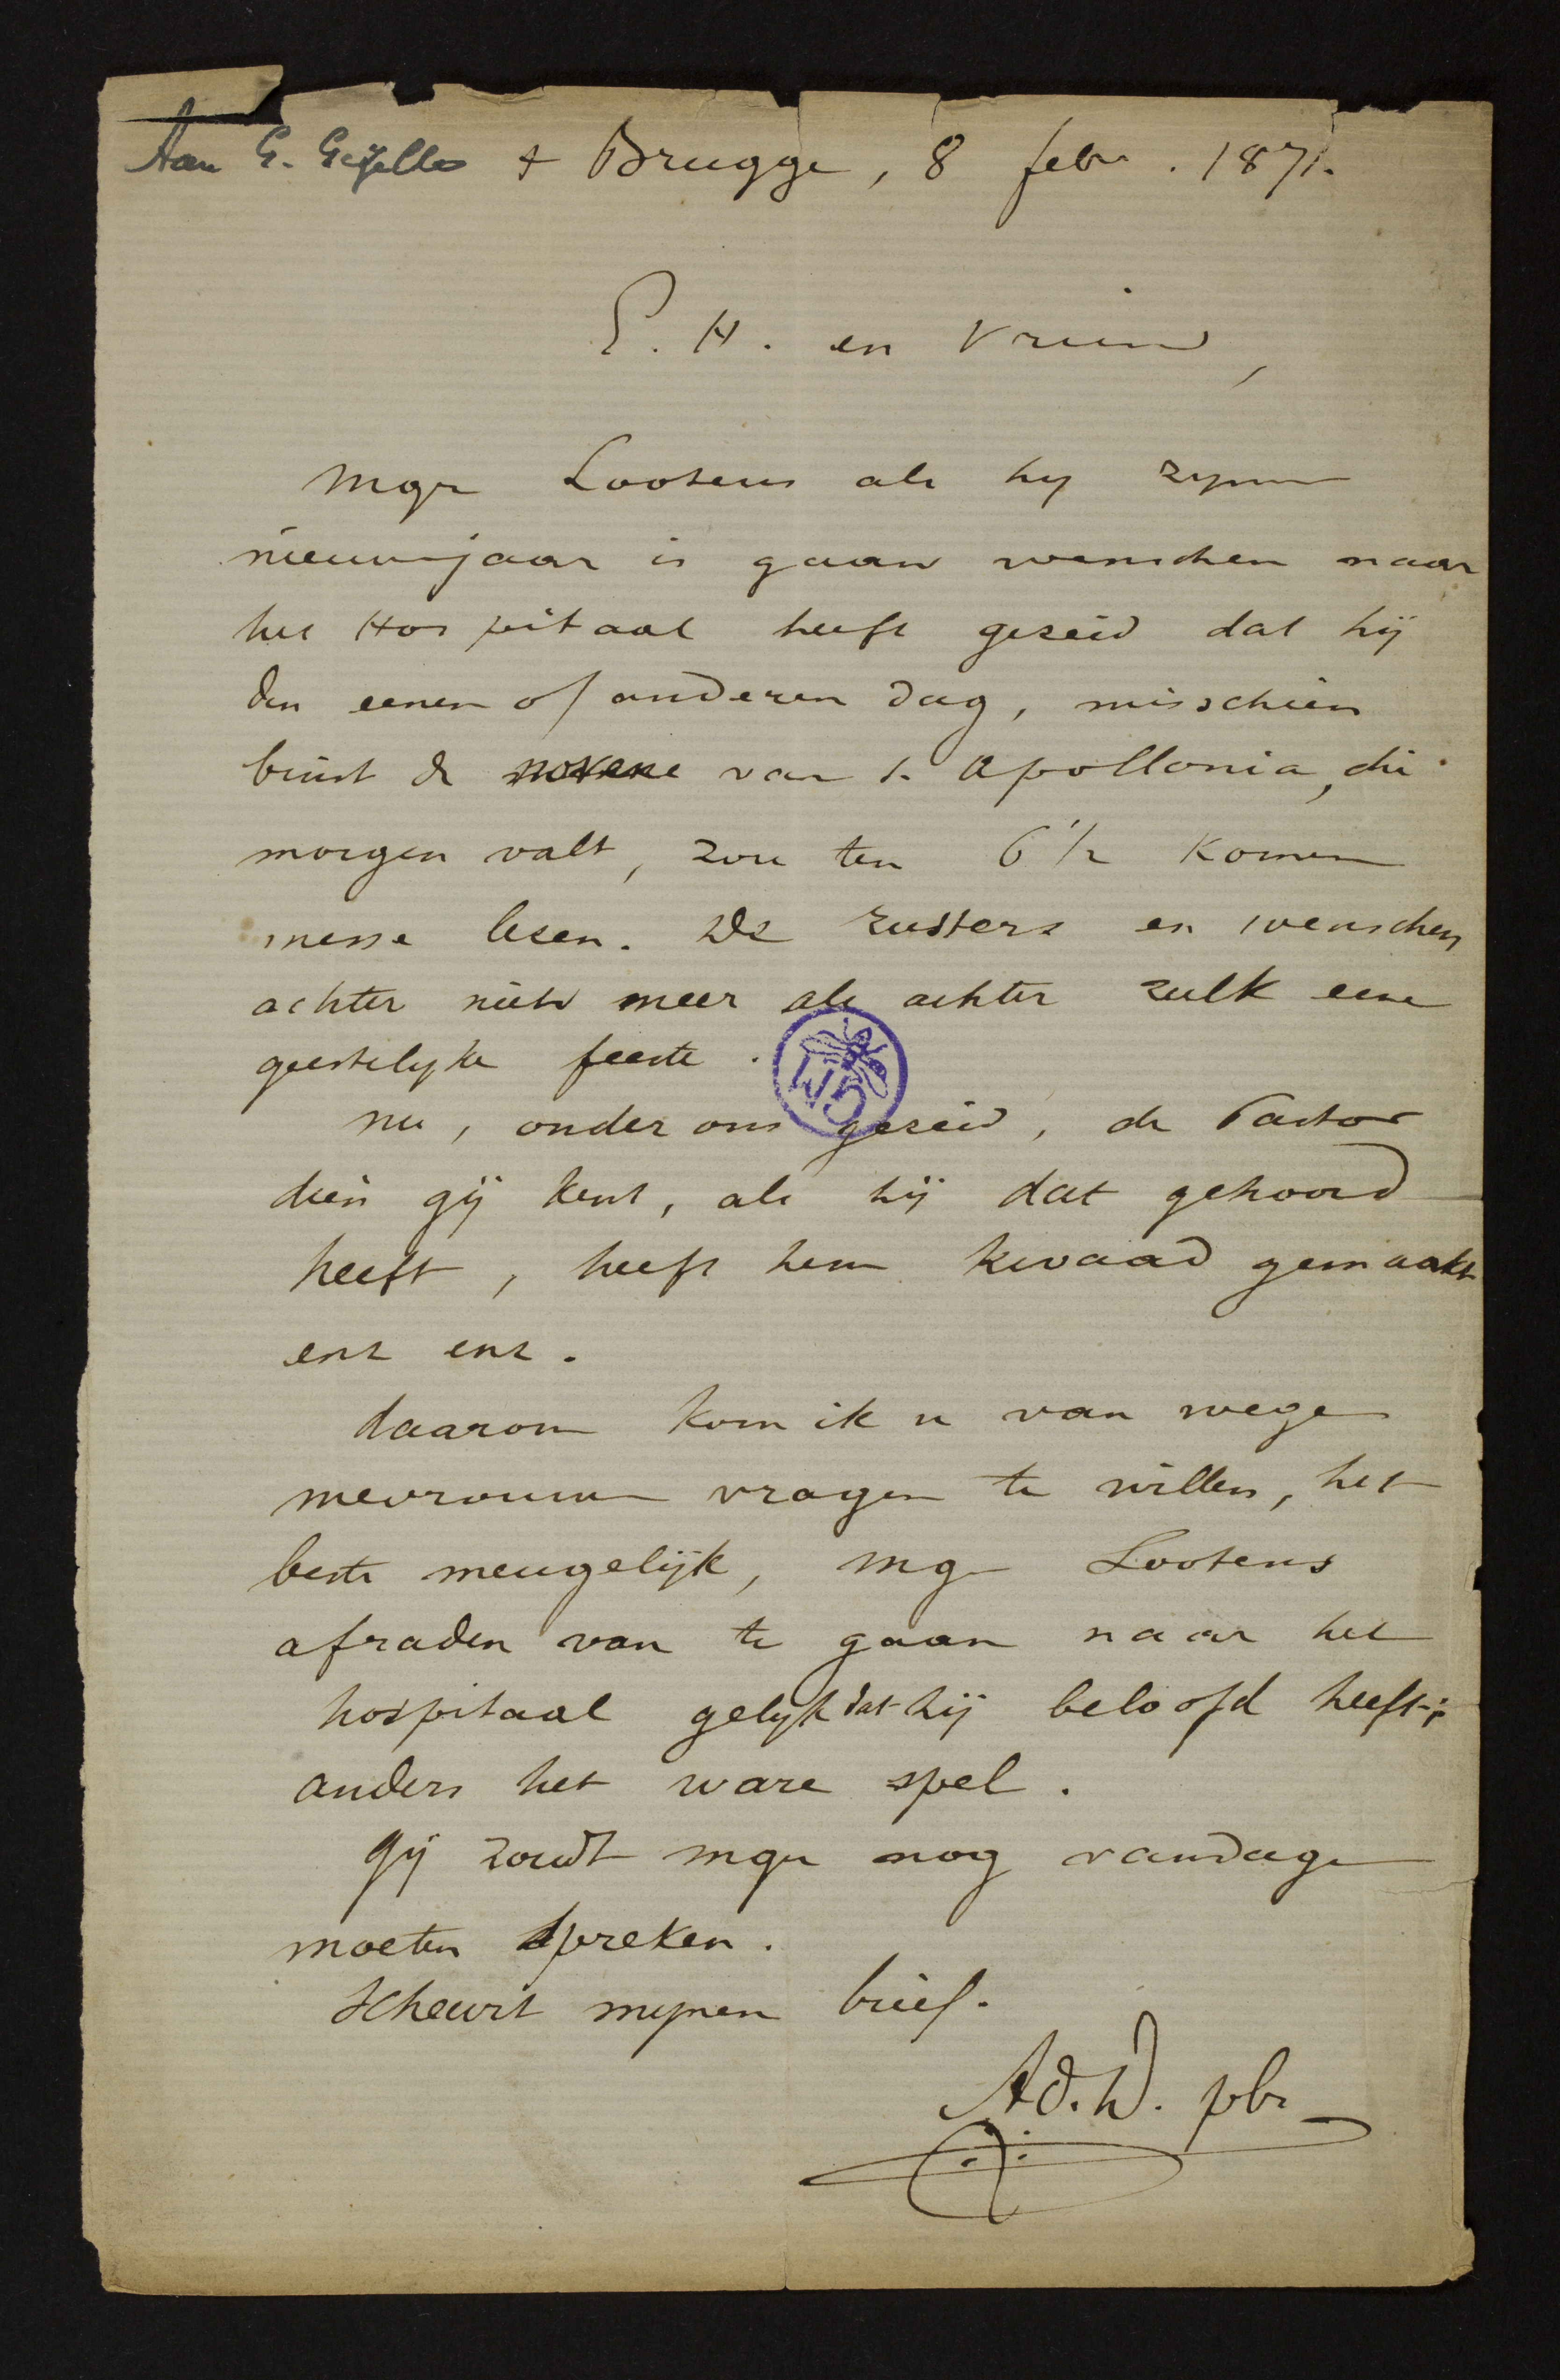 Aan G. Gezelle + Brugge, 8 febr. 1871.
E. H. en vriend,
Mgr Lootens als hy zynen
nieuwjaar is gaan wenschen naar
het Hospitaal heeft gezeid dat hij
den eenen of anderen dag, misschien
binst de novene van S. Apollonia, die
morgen valt, zou ten 6 1/2 komen
messe lesen. De zusters en wenschen
achter niets meer als achter zulk eene
geestelyke feeste.
nu, onder ons gezeid, de Pastor
dien gij kent, als hij dat gehoord
heeft, heeft hem kwaad gemaakt
enz enz.
daarom kom ik u van wege
mevrouwe vragen te willen, het
beste meugelijk, mgr Lootens
afraden van te gaan naar het
hospitaal gelyk dat hij beloofd heeft;
anders het ware spel.
Gij zoudt mgr nog vandage
moeten spreken.
Scheurt mynen brief.
Ad. D. pbr